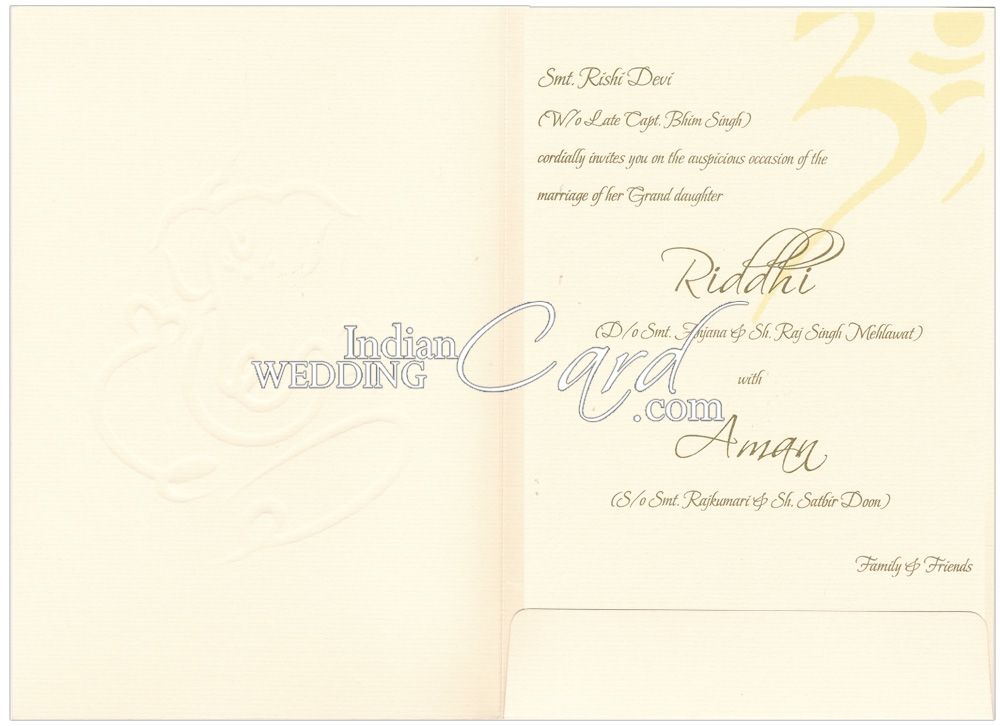 Smt. Rishi Devi
(W/o Late Capt. Bhim Singh)
cordially invites you on the auspicious occasion of the
marriage of her Grand daughter
Riddhi
(D/o Smt. Anjana & Sh. Raj Singh Mehlawat)
with
Aman
(S/o Smt. Rajkumari & Sh. Satbir Doon)
Family & Friends
Indian
WEDDING Card
.com
ॐ